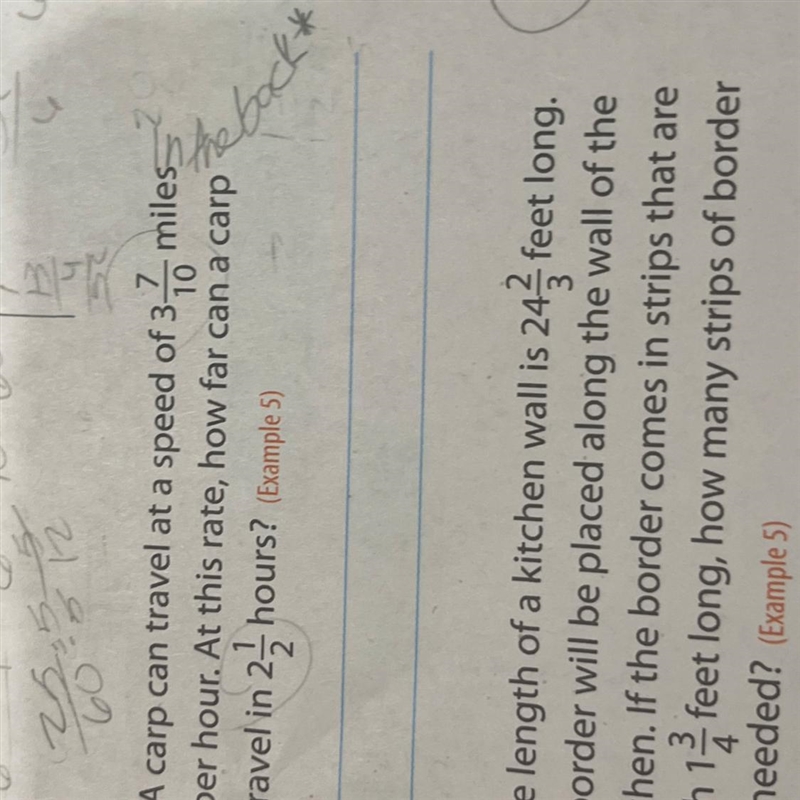 A carp can travel at a speed of 3 7/10 miles
per hour. At this rate, how far can a carp
travel in 2 1/2 hours? (Example 5)
the back*
25/60 ÷ 5/5 5/12
e length of a kitchen wall is 24 2/3 feet long.
border will be placed along the wall of the
hen. If the border comes in strips that are
1 3/4 feet long, how many strips of border
needed? (Example 5)